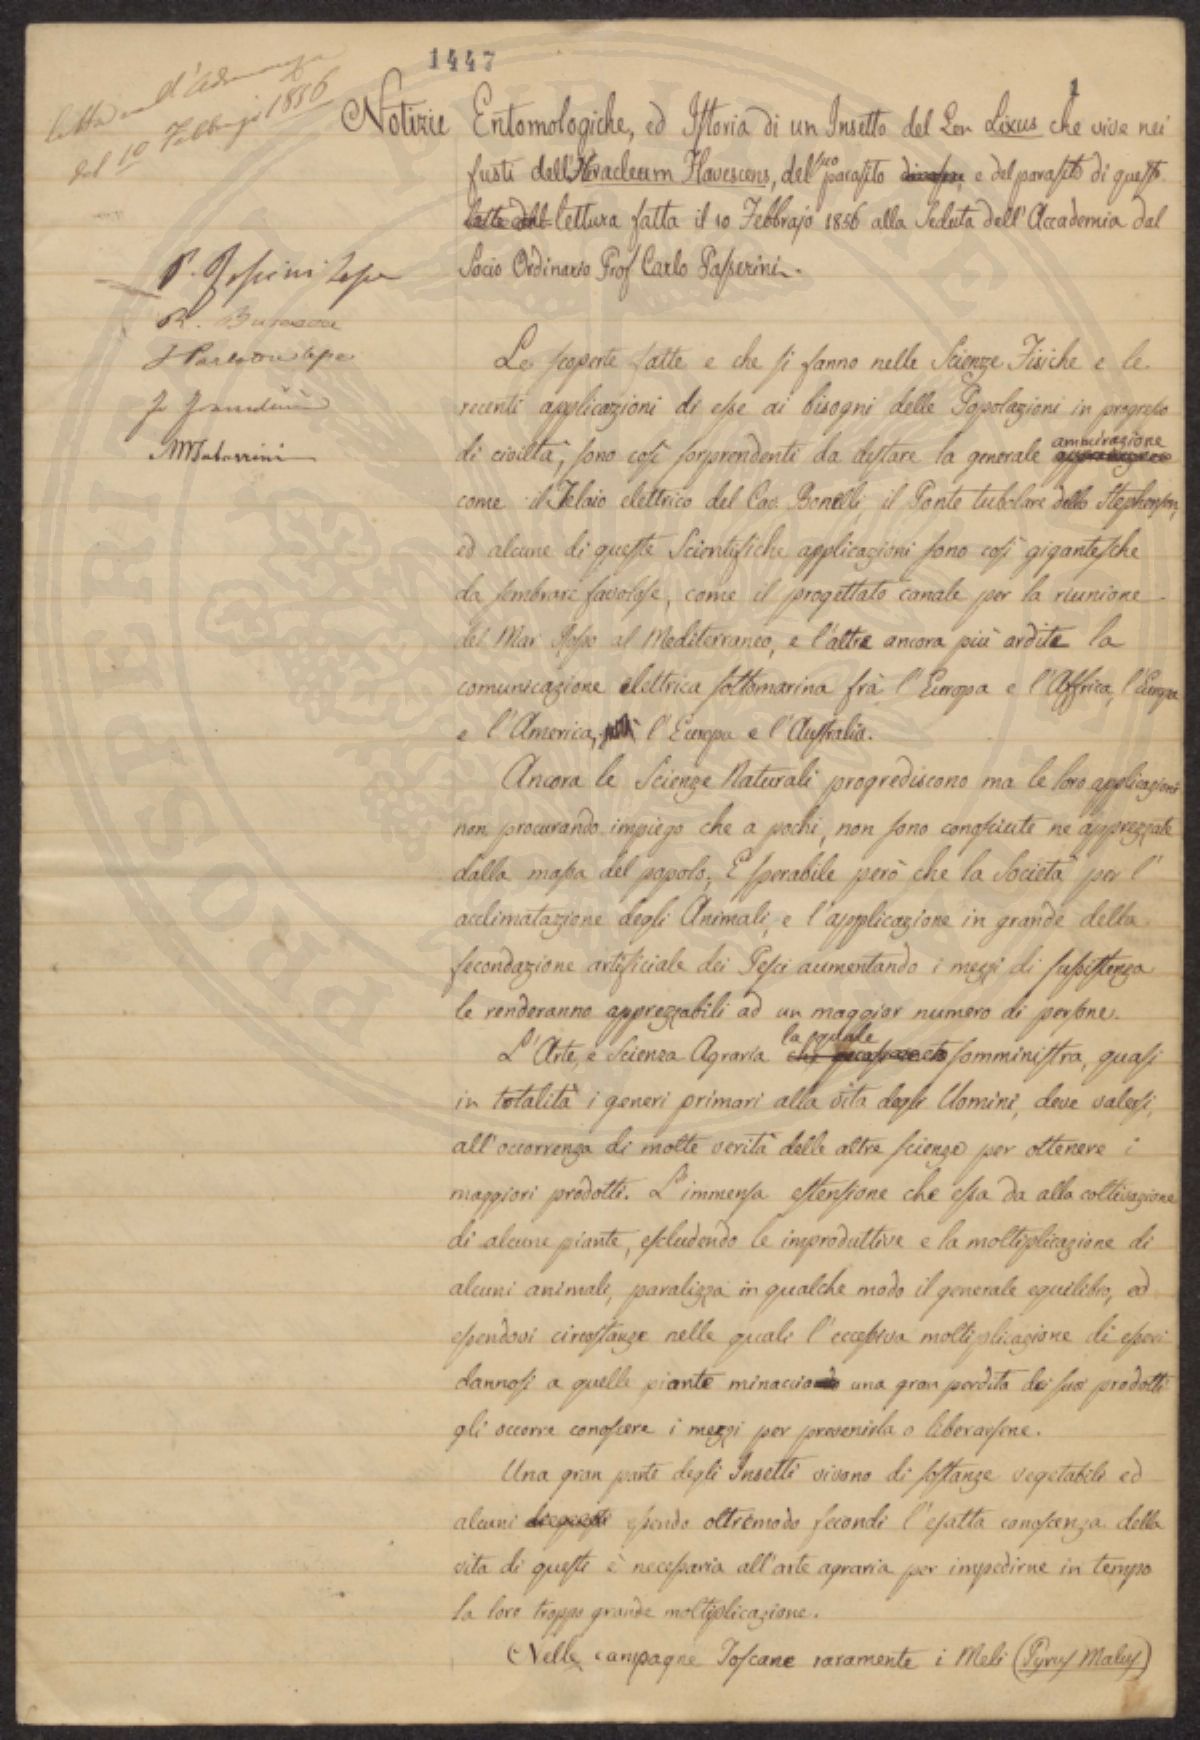 1447
1
letta nell'Adunanza
del 10 Febbrajo 1856
Notizie Entomologiche, ed Istoria di un Insetto del Gen Lixus che vive nei
fusti dell'Heracleum Flavescens, del suo parasito e del parasito di questo
lettura fatta il 10 Febbrajo 1856 alla Seduta dell'Accademia dal
Socio Ordinario Prof Carlo Passerini.
Le scoperte fatte e che si fanno nelle Scienze Fisiche e le
recenti applicazioni di esse ai bisogni delle Popolazioni in progresso
di civiltà, sono così sorprendenti da destare la generale ammirazione
come il Telaio elettrico del Cav. Bonelli, il Ponte tubolare dello Stephenson,
ed alcune di queste Scientifiche applicazioni sono così gigantesche
da sembrare favolose, come il progettato canale per la riunione
del Mar Rosso al Mediterraneo, e l'altre ancora più ardite la
comunicazione elettrica sottomarina frà l'Europa e l'Affrica, l'Europa
e l'America, l'Europa e l'Australia.
Ancora le Scienze Naturali progrediscono ma le loro applicazioni
non procurando impiego che a pochi, non sono conosciute ne apprezzate
dalla massa del popolo; È sperabile però che la Società per l'
acclimatazione degli Animali, e l'applicazione in grande della
fecondazione artificiale dei Pesci aumentando i mezzi di sussistenza
le renderanno apprezzabili ad un maggior numero di persone.
L'Arte, e Scienza Agraria la quale somministra, quasi
in totalità i generi primari alla vita degli Uomini, deve valersi,
all'occorrenza di molte verità delle altre scienze per ottenere i
maggiori prodotti. L'immensa estensione che essa da alla coltivazione
di alcune piante, escludendo le improduttive e la moltiplicazione di
alcuni animali, paralizza in qualche modo il generale equilibro, ed
essendovi circostanze nelle quali l'eccessiva moltiplicazione di esseri
dannosi a quelle piante minaccia una gran perdita dei suoi prodotti
gli occorre conoscere i mezzi per prevenirla o liberarsene.
Una gran parte degli Insetti vivono di sostanze vegetabili ed
alcuni essendo oltremodo fecondi l'esatta conoscenza della
vita di questi è necessaria all'arte agraria per impedirne in tempo
la loro troppo grande moltiplicazione.
Nelle campagne Toscane raramente i Meli (Pyrus Malus)